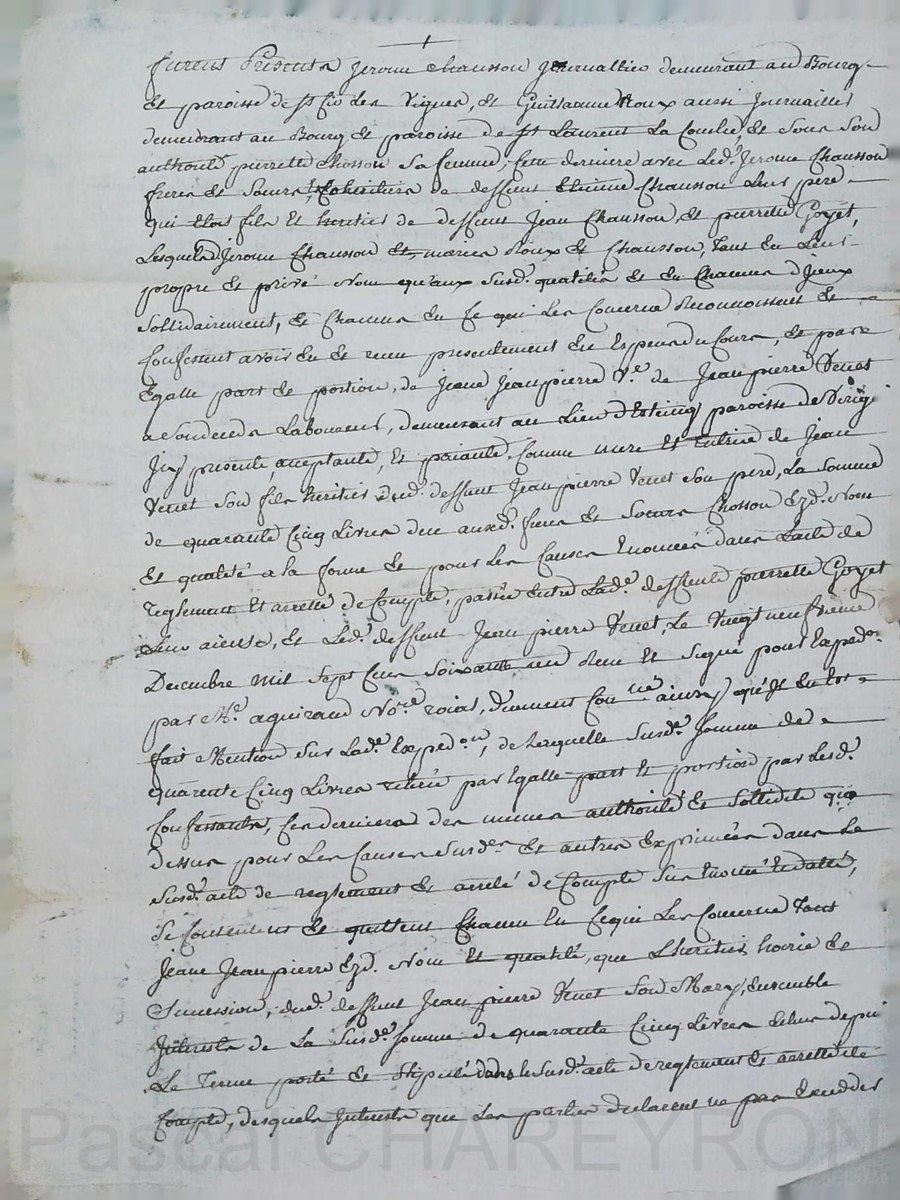 furent Présents Jerome chausson Journallier demeurant au Bourg
et paroisse de st Cir des Vignes, et Guillaume Roux aussi Journaillier
demeurant au Bourg et paroisse de st Laurent La Conche, et sous son
authorité pierrette Chosson sa femme, cette derniere avec led. Jerome Chausson
freres et soeurs, Cohéritiers de deffunt Etienne Chausson Leur pere
qui étoit fils et héritier de deffunts Jean Chausson, et pierrette Goyet,
Lesquels Jerome Chausson et, mariés Roux et Chausson, tant en Leurs
propre et privé Nom qu'aux susd. qualités et en Chacun d'jceux
sollidairement, et Chacun en Ce qui Les Concerne Reconnoissent et
Confessent avoir eu et recu presentement en Especes du Cours, et par
Egalle part et portion, de Jeane Jeanpierre Ve. de Jeanpierre Venet
Laboureur, demeurant au Lieu d'Esteing paroisse de
Jcy presente acceptante, et paiante Comme mere et tutrice de Jean
Venet son fils héritier dud. deffunt Jeanpierre Venet son pere, La somme
de quarante Cinq Livres due auxd. frere et soeurs Chosson Ezd. Nom
et qualité a la forme et pour Les Causes Enoncées dans Lacte de
reglement et arretté de Compte, passée entre Lade. deffunte pierrette Goyet
Leur aieule, et Led. deffunt Jean pierre Venet, Le Vingt neufvieme
Decembre mil sept Cens soixante un Recu et signé pour Expedon.
par Me. aguiraud Nore. roial, duement Conné ainsy qu'jl en Est
fait Mention sur Lade. Expedon, de Lesquelle susde. somme de
quarente Cinq Livres retirée par Egalle part et portion par Lesd.
Confessants, Ces derniers des memes authorité et sollidité que
dessus pour Les Causes susdes et autres Exprimées dans Le
susd. acte de reglement et arreté de Compte sus Enoncé et datté,
se Contentent et quittent Chacun En Cequi Les Concerne tant
Jeane Jeanpierre Ezd. Nom et qualité, que L'heritier, hoirie et
Succession, dud. deffunt Jean pierre Venet son Mary, Ensemble
Jnterests de La susde. somme de quarante Cinq Livres Echus depuis
Le Terme porté et Stipulé dans le susd. acte de reglement et arretté de
Compte, desquels Jnterests que Les parties declarent ne pas Exceder
Pascal CHAREYRON